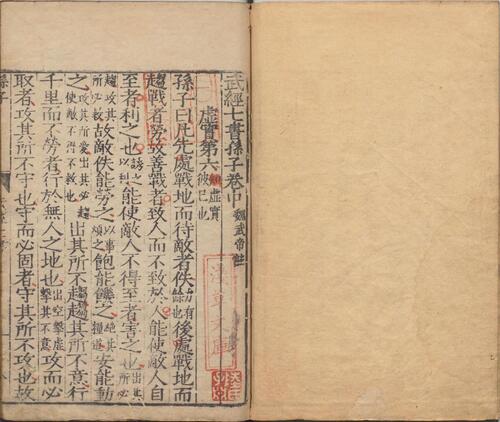 武經七書孫子卷中 魏武帝註
虛實第六 能虛實彼已也
孫子曰凡先處戰地而待敵者佚力有餘也後處戰地而
趨戰者勞故善戰者致人而不致於人能使敵人自
至者利之也誘之以利也能使敵人不得至者害之也出其所必
趨攻其所必救故敵佚能勞之以事煩之飽能饑之絕其糧道安能動
之攻其所愛出其必趨使敵不得不救也出其所不趨趨其所不意行
千里而不勞者行於無人之地也出空擊虛擊其不意攻而必
取者攻其所不守也守而必固者守其所不攻也故
孫子